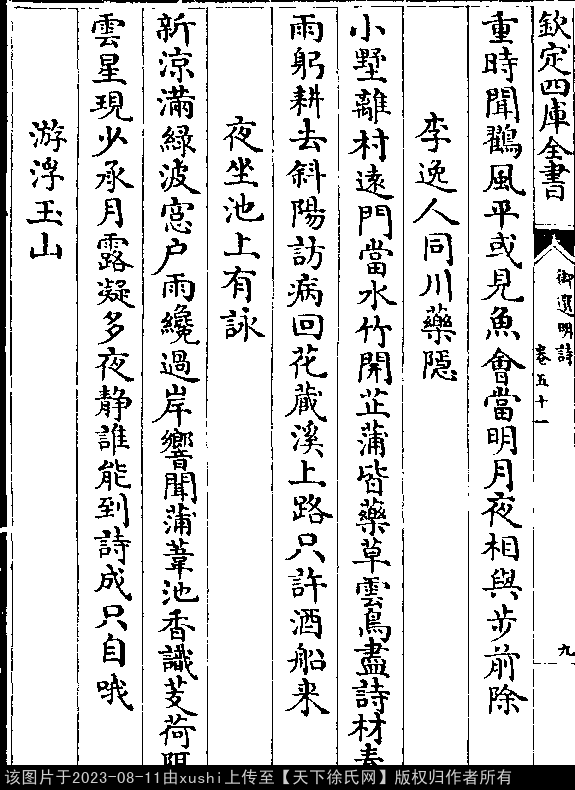 欽定四庫全書
御選明詩
卷五十一
九
重時聞鸛風平或見魚會當明月夜相與步前除
李逸人同川藥隱
小墅離村遠門當水竹開芷蒲皆藥草雲鳥盡詩材春
雨躬耕去斜陽訪病回花藏溪上路只許酒船来
夜坐池上有詠
新涼滿綠波窓户雨纔過岸響聞蒲葦池香識芰荷
雲星現少承月露凝多夜静誰能到詩成只自哦
游浮玉山
该图片于2023-08-11由xushi上传至【天下徐氏网】版权归作者所有